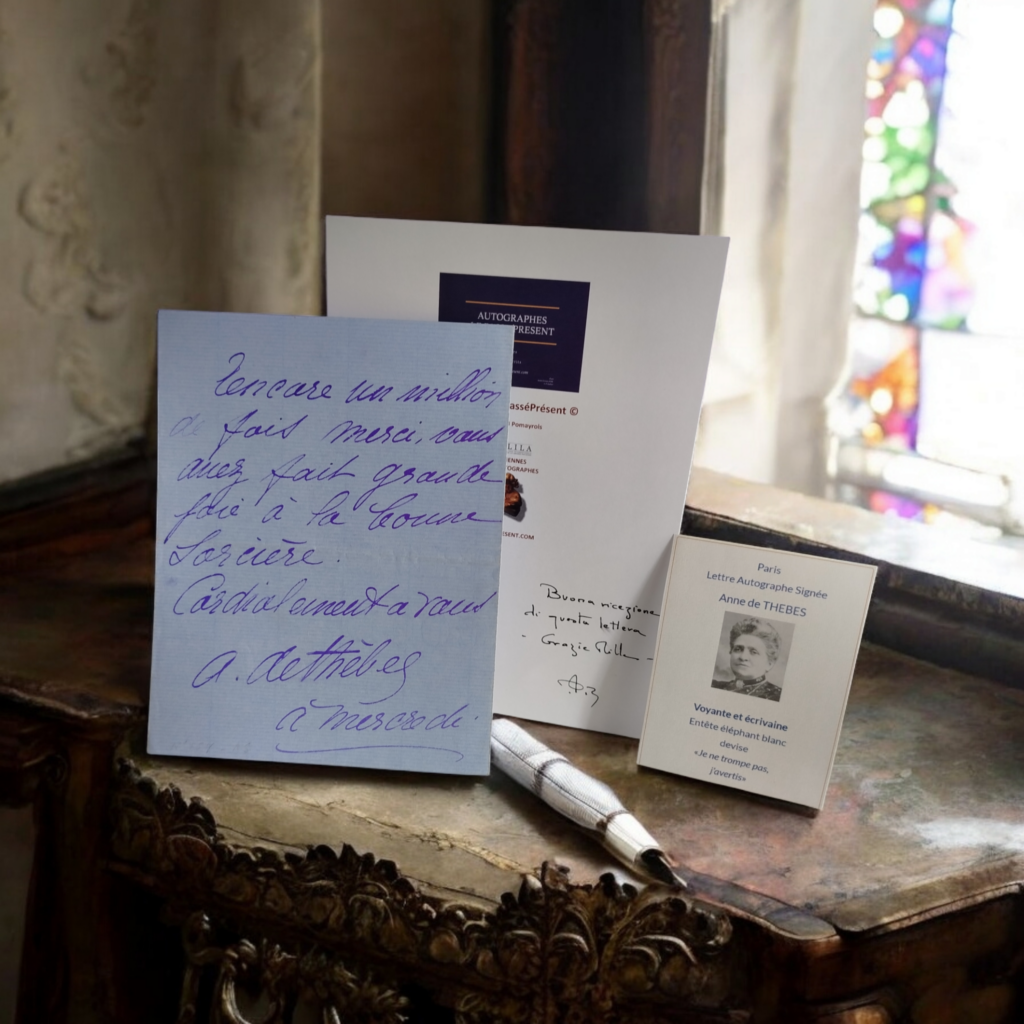 Encore un million
de fois merci, vous
avez fait grande
joie à la bonne
Sorcière.
Cordialement à vous
A. de Thèbes
à mercredi.
AUTOGRAPHES
PRESENT
asséPrésent ©
Pomayrols
LILA
IENNES
TOGRAPHES
ESENT.COM
Buona ricezione
di questa lettera
- Grazie Mille -
Paris
Lettre Autographe Signée
Anne de THEBES
Voyante et écrivaine
Entête éléphant blanc
devise
«Je ne trompe pas,
j'avertis»